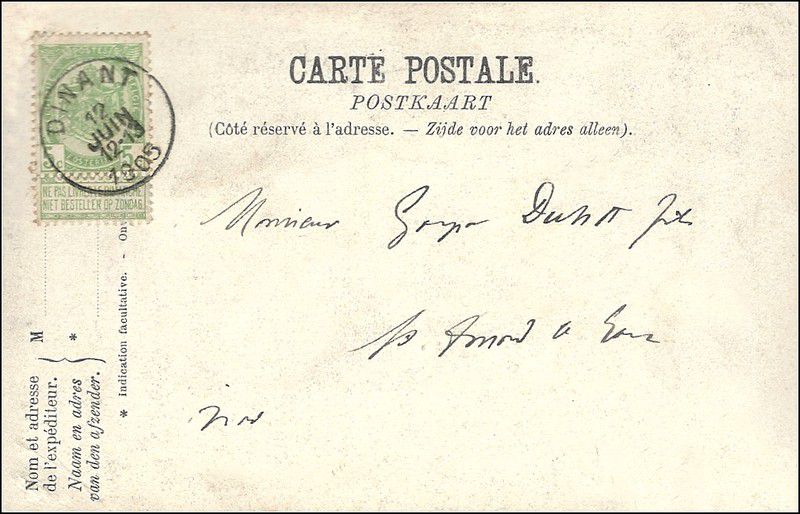 CARTE POSTALE.
POSTKAART
(Côté réservé à l'adresse. — Zijde voor het adres alleen).
DINANT
12
JUIN
12-
1905
5 5
NE PAS LIVRER LE DIMANCHE
NIET BESTELLEN OP ZONDAG
Monsieur
St. Amand
Nord
Nom et adresse
de l'expéditeur.
Naam en adres
van den afzender.
M
*
* Indication facultative. - On